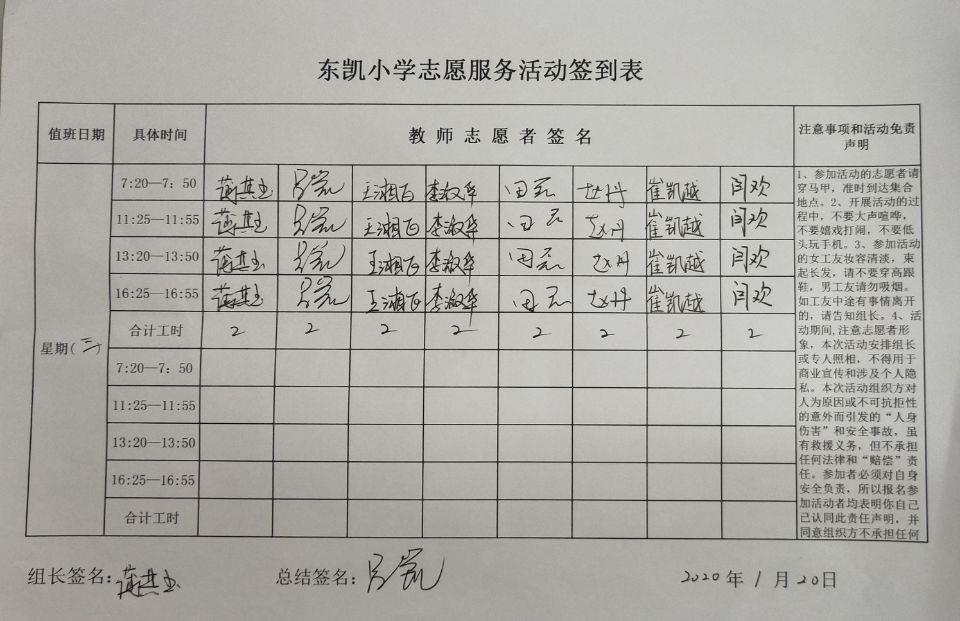 东凯小学志愿服务活动签到表
值班日期 具体时间 教师志愿者签名 注意事项和活动免责声明
7:20—7:50 吕凯 王湘飞 李淑华 田磊 赵丹 崔凯越 闫欢
11:25—11:55 吕凯 王湘飞 李淑华 田磊 赵丹 崔凯越 闫欢
13:20—13:50 吕凯 王湘飞 李淑华 田磊 赵丹 崔凯越 闫欢
16:25—16:55 吕凯 王湘飞 李淑华 田磊 赵丹 崔凯越 闫欢
合计工时 2 2 2 2 2 2 2 2
星期(三)
7:20—7:50
11:25—11:55
13:20—13:50
16:25—16:55
合计工时
1、参加活动的志愿者请
穿马甲，准时到达集合
地点。2、开展活动的过
程中，不要大声喧哗，
不要嬉戏打闹，不要低
头玩手机。3、参加活动
的女工友妆容清淡，束
起长发，请不要穿高跟
鞋，男工友请勿吸烟。
如工友中途有事情离开
的，请告知组长。4、活
动期间,注意志愿者形
象，本次活动安排组长
或专人照相，不得用于
商业宣传和涉及个人隐
私。本次活动组织方对
人为原因或不可抗拒性
的意外而引发的“人身
伤害”和安全事故，虽
有救援义务，但不承担
任何法律和“赔偿”责
任。参加者必须对自身
安全负责，所以报名参
加活动者均表明你自己
己认同此责任声明，并
同意组织方不承担任何
组长签名: 总结签名: 吕凯 2020年1月20日